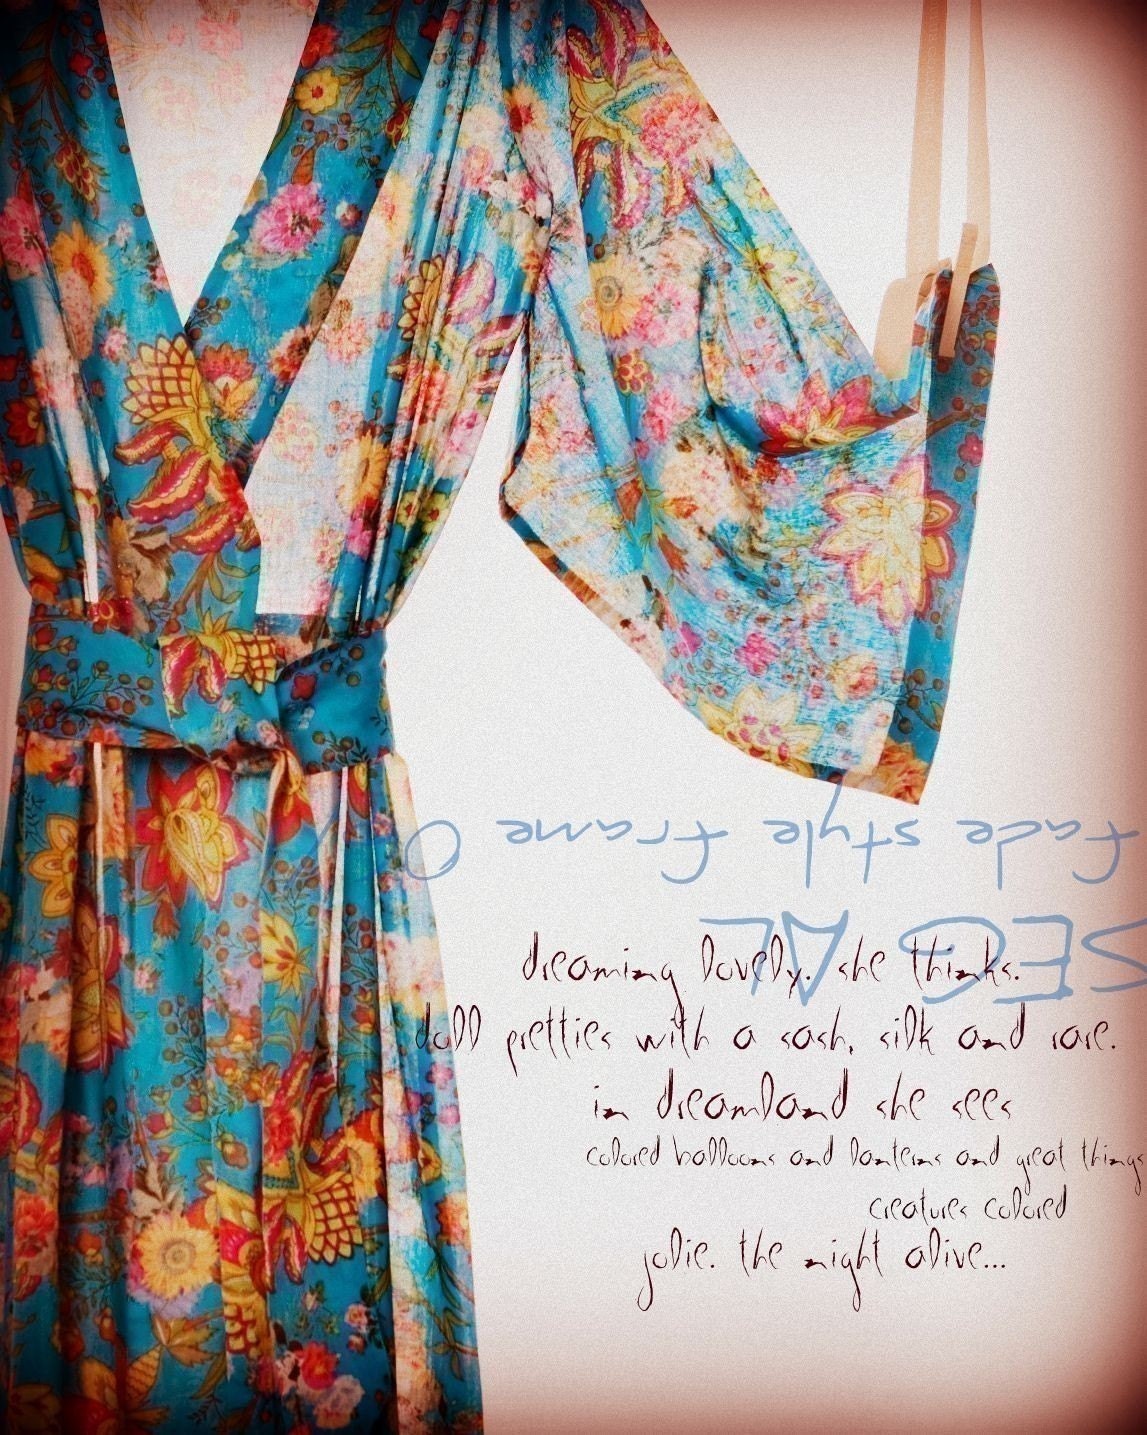 fade style frame
dreaming lovely. she thinks.
doll pretties with a sash, silk and rare.
in dreamland she sees
colored balloons and lanterns and great things
creatures colored
jolie. the night alive...